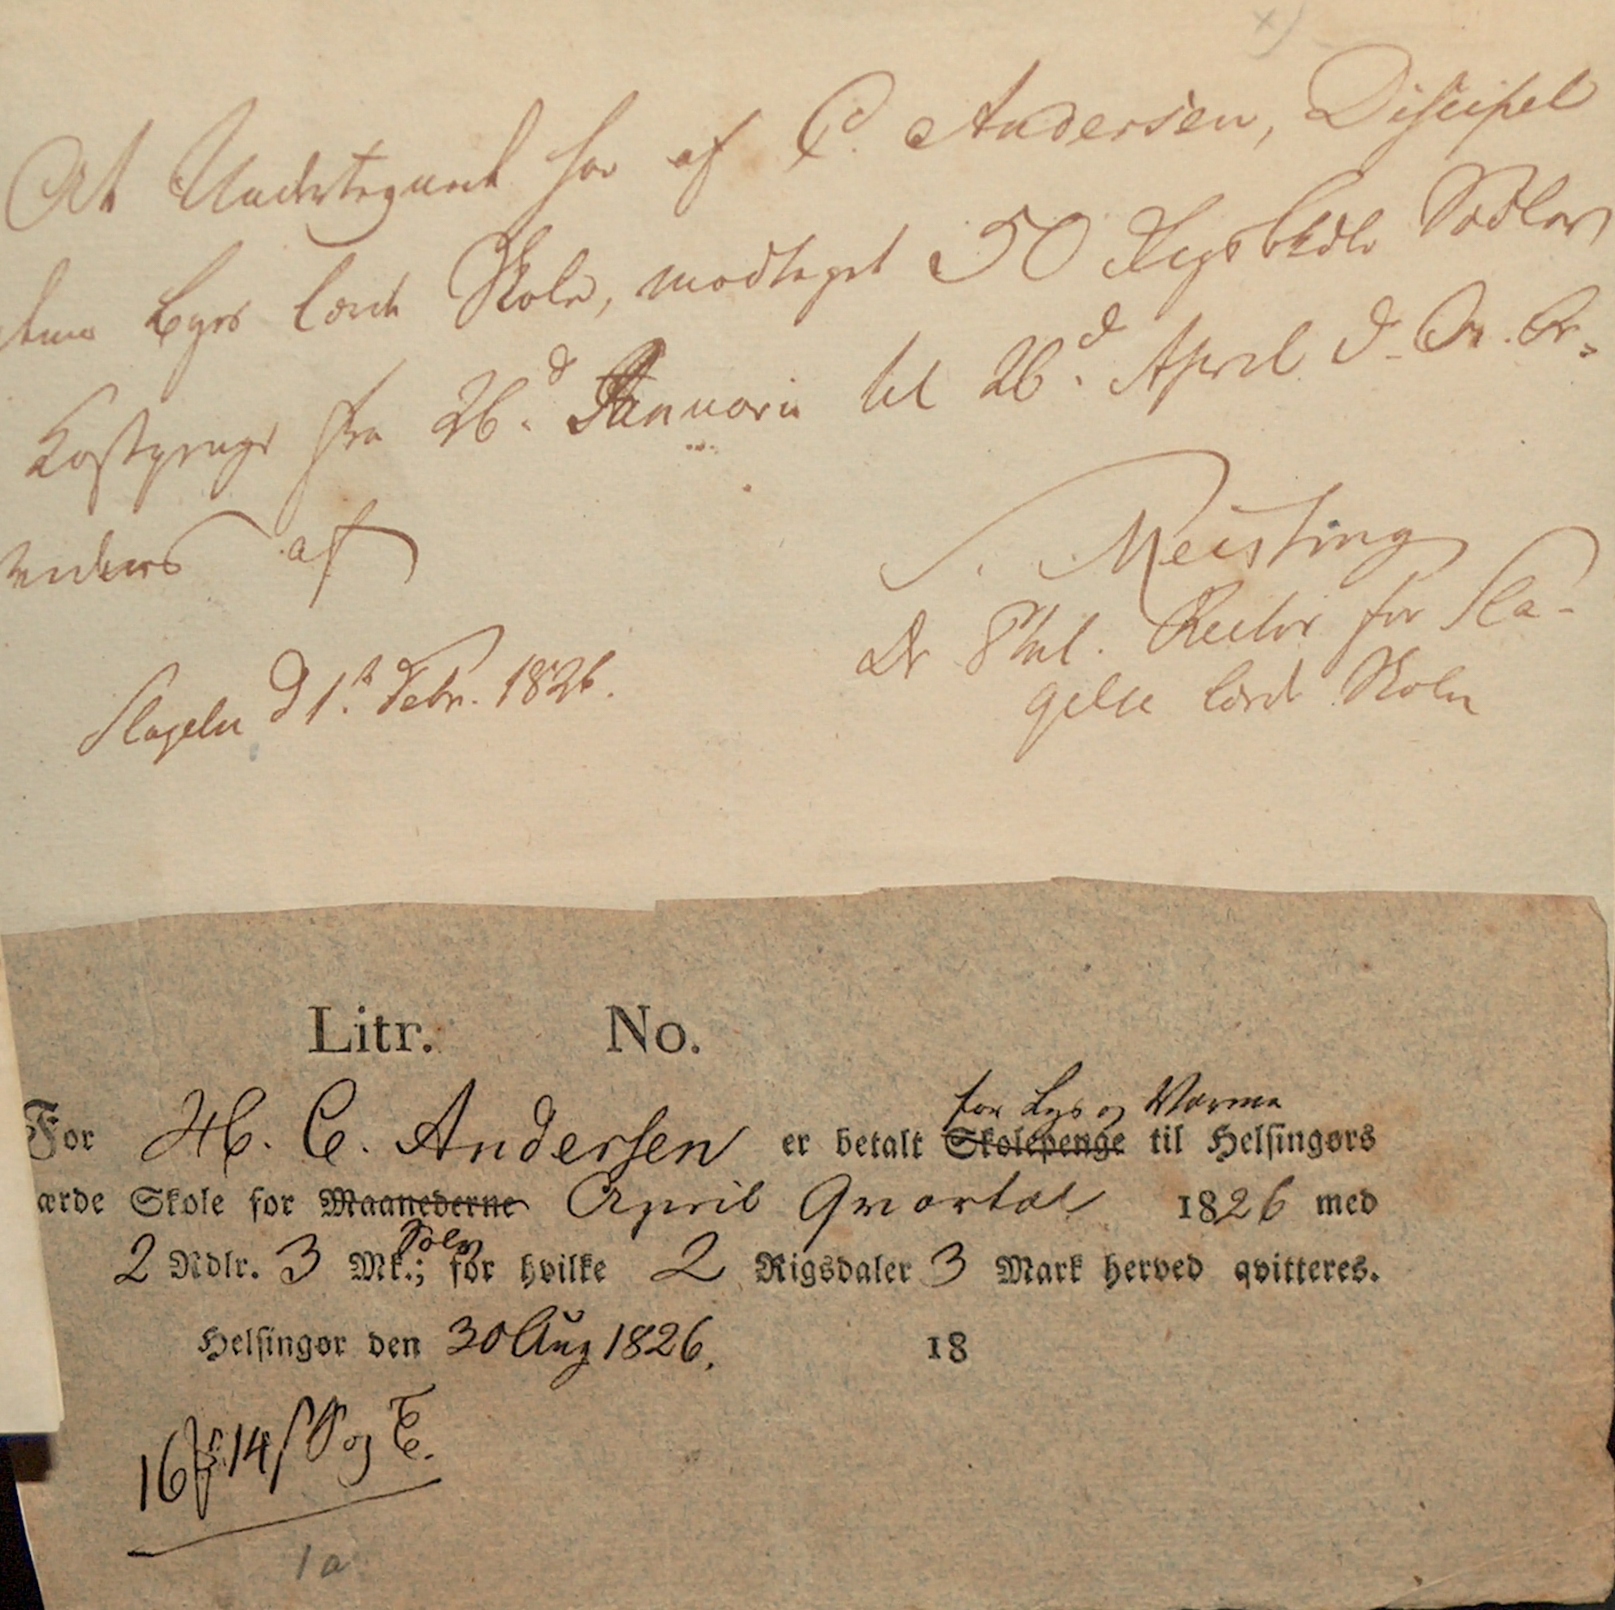 At Undertegnede har af C. Andersen, Discipel
denne Byes lærde Skole, modtaget 50 Rigsbkdlr Sedler
Kostpenge fra 26.d Januarii til 26.d April d. A. Er-
kiendes af
S. Meisling
Dr Phil. Rector for Sla-
gelse lærde Skole
Slagelse d 1.st Febr. 1826.
Litr. No.
for Lys og Varme
For H. C. Andersen er betalt Skolepenge til Helsingørs
ærde Skole for Maanederne April Qvartal 1826 med
Sølv
2 Rdlr. 3 Mk.; for hvilke 2 Rigsdaler 3 Mark herved qvitteres.
Helsingør den 30 Aug 1826. 18
1a